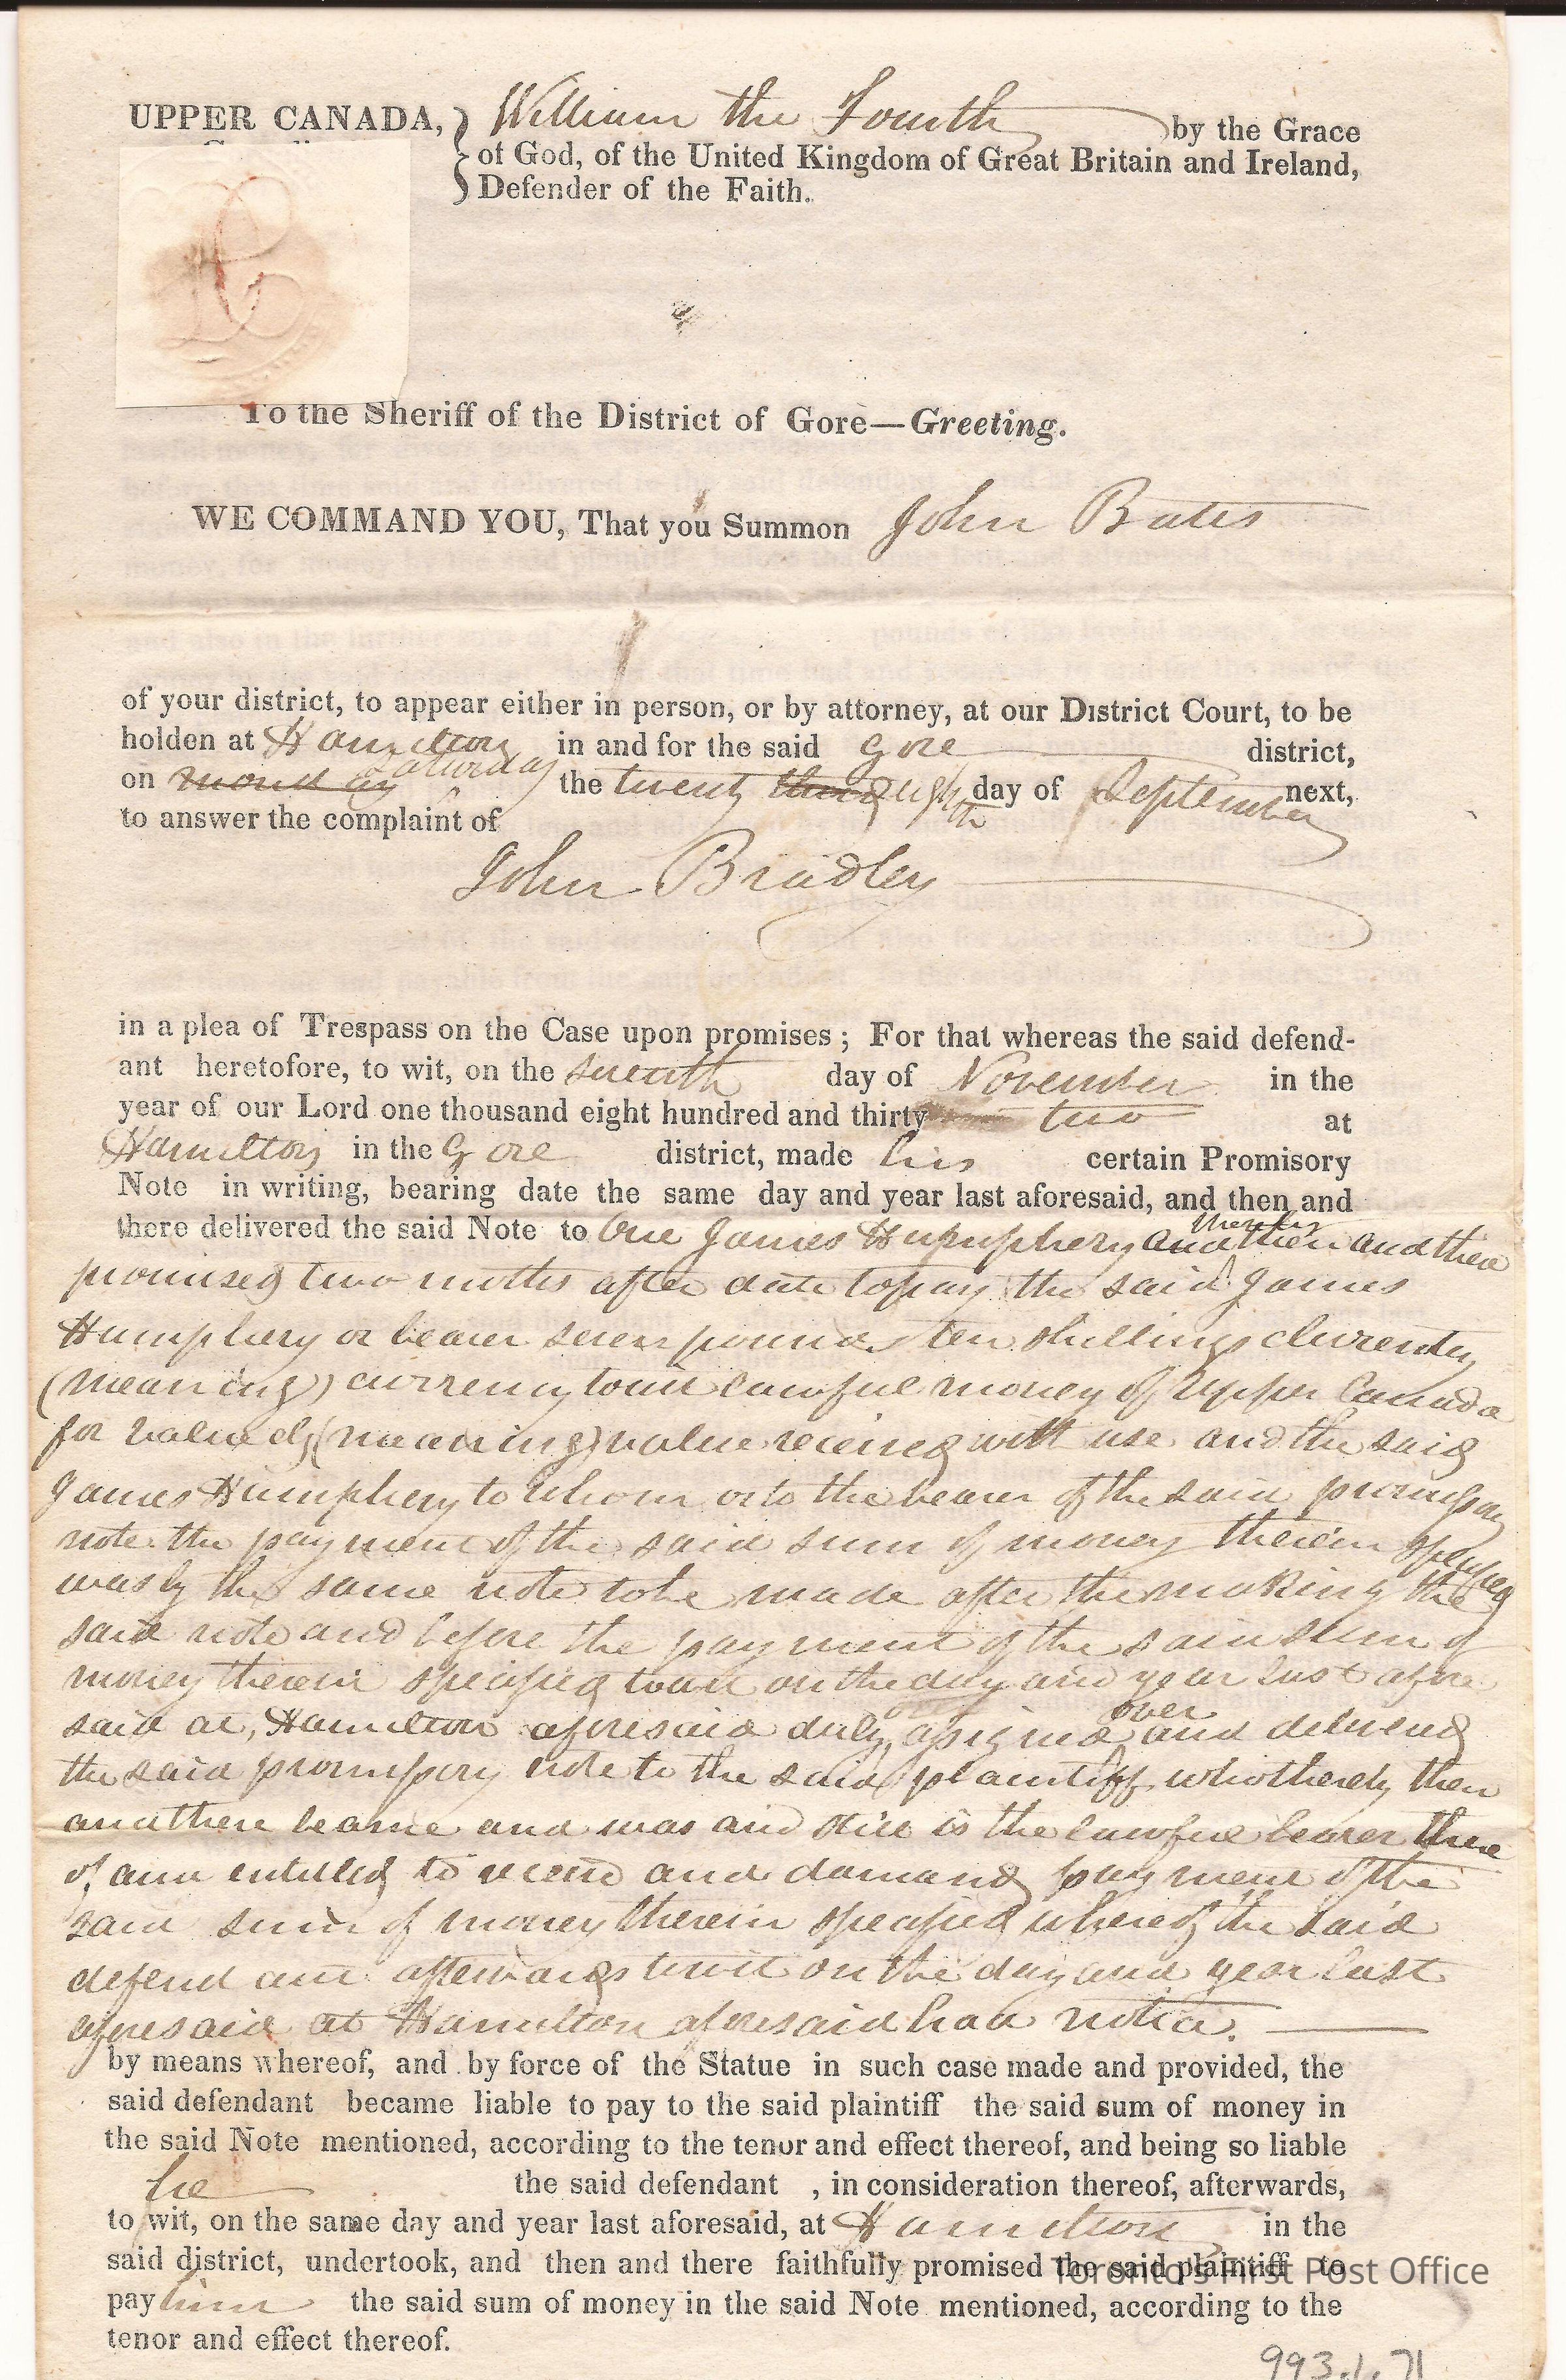 UPPER CANADA, William the Fourth by the Grace
of God, of the United Kingdom of Great Britain and Ireland,
Defender of the Faith.
To the Sheriff of the District of Gore—Greeting.
WE COMMAND YOU, That you Summon John Bates
of your district, to appear either in person, or by attorney, at our District Court, to be
holden at Hamilton in and for the said Gore district,
on monday Saturday the twenty third eighth day of September next,
to answer the complaint of
John Bradley
in a plea of Trespass on the Case upon promises ; For that whereas the said defend-
ant heretofore, to wit, on the seventh day of November in the
year of our Lord one thousand eight hundred and thirty two at
Hamilton in the Gore district, made his certain Promisory
Note in writing, bearing date the same day and year last aforesaid, and then and
there delivered the said Note to One James Humphery and thereby then and there
promised two moths after date to pay the said James
Humphery or bearer seven pounds ten shillings
(meaning) currency towit lawful money of Upper Canada
for (meaning) value received with use and the said
James Humphery to whom or to the bearer of the said promissory
note the payment of the said sum of money therein specified
was by the same note to be made after the making the
said note and before the payment of the said sum of
money therein specified towit on the day and year last afore
said at, Hamilton aforesaid duly assigned over and delivered
the said promissory note to the said plaintiff who thereby then
and there became and was and still is the lawful bearer there
of and entitled to receive and demand payment of the
said sum of money therein specified whereof the said
defendant afterwards towit on the day and year last
aforesaid at Hamilton aforesaid had notice.
by means whereof, and by force of the Statue in such case made and provided, the
said defendant became liable to pay to the said plaintiff the said sum of money in
the said Note mentioned, according to the tenor and effect thereof, and being so liable
he the said defendant , in consideration thereof, afterwards,
to wit, on the same day and year last aforesaid, at Hamilton in the
said district, undertook, and then and there faithfully promised the said plaintiff to
Toronto's First Post Office
pay him the said sum of money in the said Note mentioned, according to the
tenor and effect thereof.
993.1.71